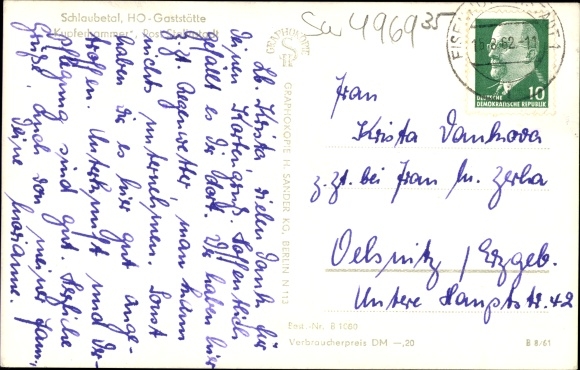 Schlaubetal, HO-Gaststätte
"Kupferhammer", Post
Sa 4969 35
10
DEUTSCHE
DEMOKRATISCHE REPUBLIK
Lb. Krista, vielen Dank für
Deinen Kartengruß. Hoffentlich
gefällt es Dir dort. Wir haben hier
z.Zt. Regenwetter, man kann
nichts unternehmen. Sonst
haben wir es hier gut ange-
troffen. Unterkunft und Ver-
pflegung sind gut. Herzliche
Grüße, auch von meiner Fam.,
Deine Marianne.
GRAPHOKOPIE H. SANDER KG, BERLIN N 113
Frau
Krista Dankova
z.Zt. bei Frau M. Zerba
Oelsnitz / Erzgeb.
Untere Hauptstr. 42
Best.-Nr. B 1080
Verbraucherpreis DM —,20
B 8/61